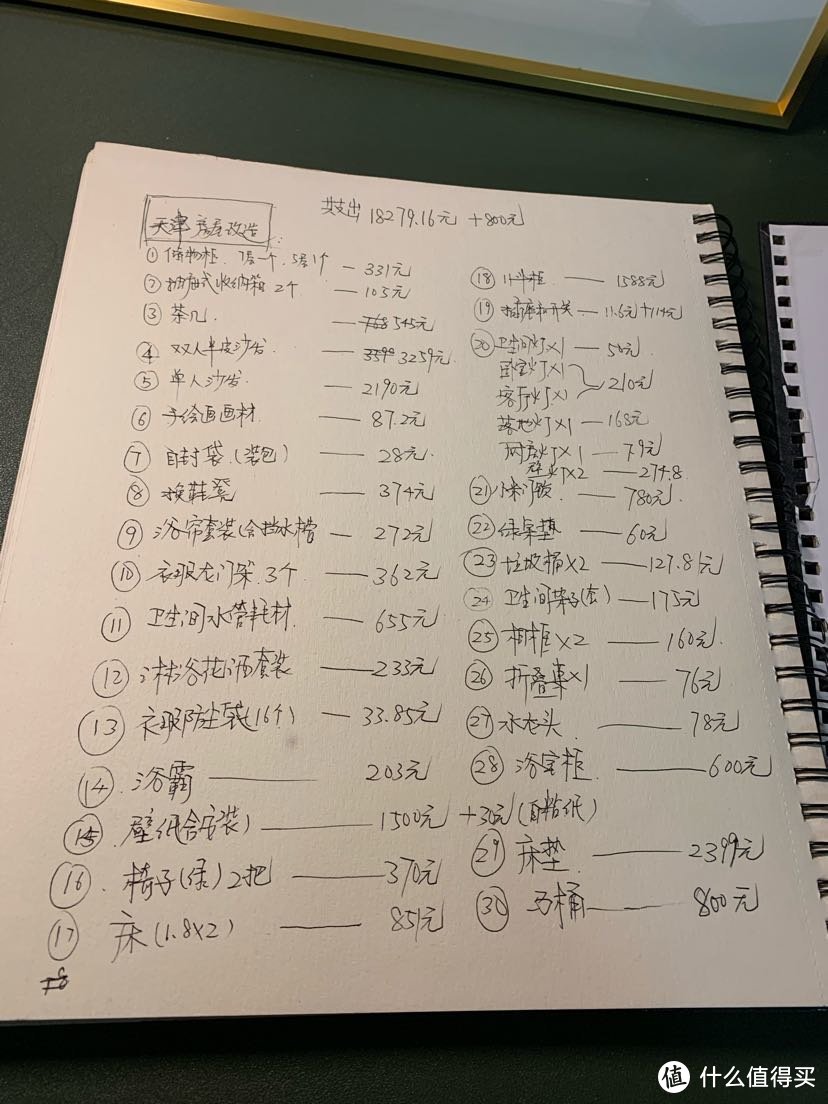 共支出 18279.16元 +800元
天津房屋改造
① 储物柜 7层一个、5层1个 — 331元
② 抽屉式收纳箱 2个 — 105元
③ 茶几 — 768 545元
④ 双人半皮沙发 — 3599 3259元
⑤ 单人沙发 — 2190元
⑥ 手绘画画材 — 87.2元
⑦ 自封袋(装包) — 28元
⑧ 换鞋凳 — 374元
⑨ 浴帘套装(含挡水槽 — 272元
⑩ 衣服龙门架 3个 — 362元
⑪ 卫生间水管耗材 — 655元
⑫ 淋浴花洒套装 — 233元
⑬ 衣服防尘袋(16个) — 33.85元
⑭ 浴霸 — 203元
⑮ 壁纸(含安装) — 1500元 +30元(自粘纸)
⑯ 椅子(绿)2把 — 370元
⑰ 床(1.8X2) — 851元
⑱ 斗柜 — 1588元
⑲ 插座和开关 — 11.6元+114元
⑳ 卫生间灯X1 — 50元
卧室灯X1
客厅灯X1 210元
落地灯X1 — 168元
灯X1 — 79元
灯X2 — 274.8
㉑ 小米门锁 — 780元
㉒ 绿桌垫 — 60元
㉓ 垃圾桶X2 — 127.81元
㉔ 卫生间架子(套) — 175元
㉕ 相框X2 — 160元
㉖ 折叠桌X1 76元
㉗ 水龙头 — 78元
㉘ 浴室柜 — 600元
㉙ 床垫 — 2399元
㉚ 马桶 — 800元
值 什么值得买